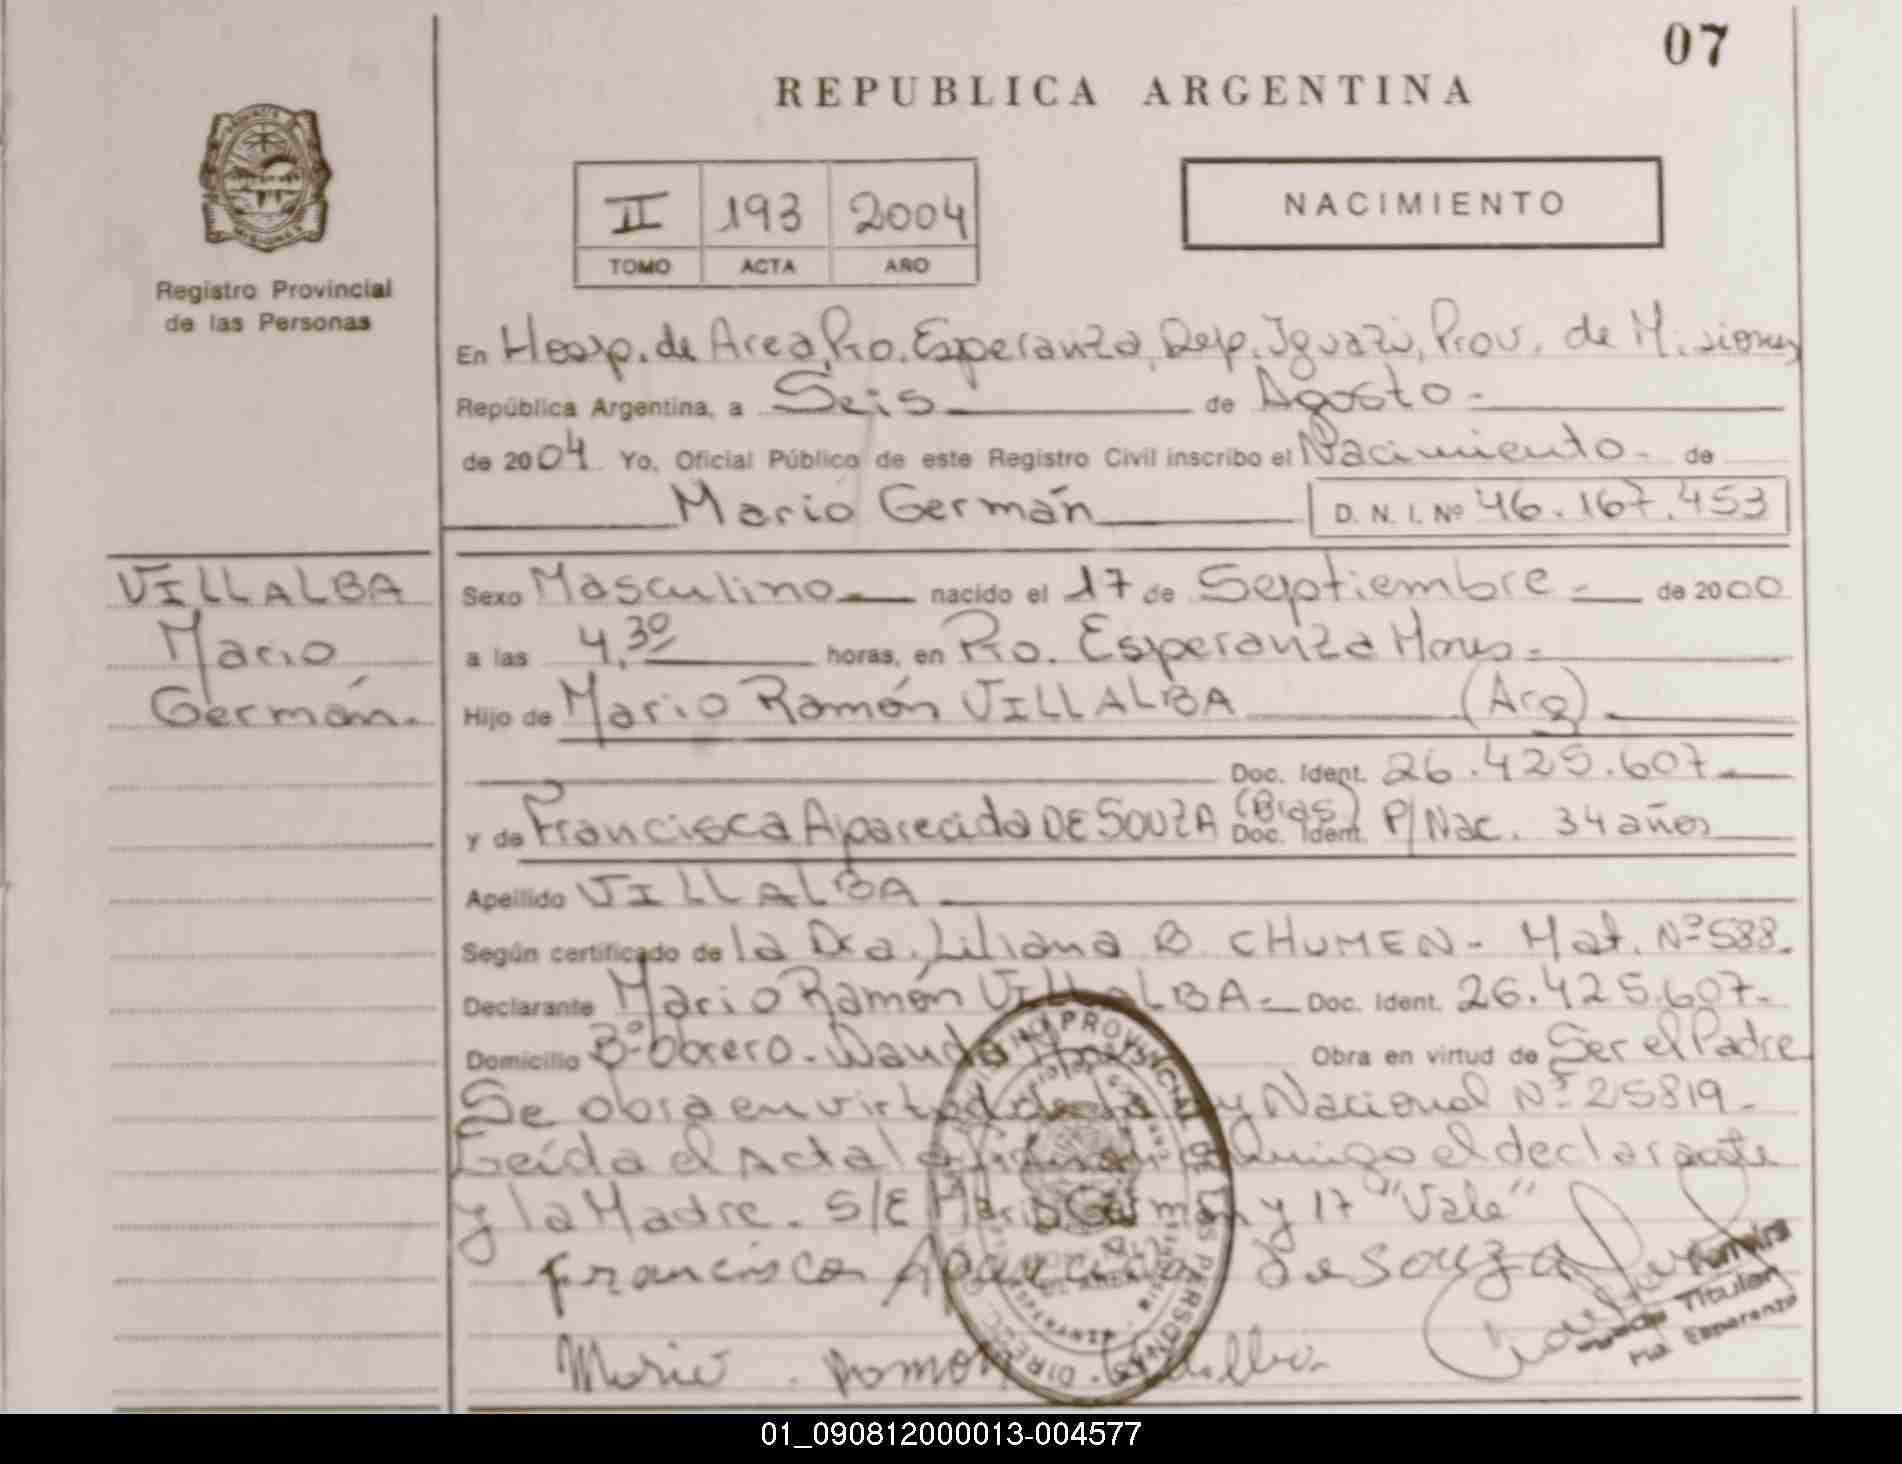 07
REPUBLICA ARGENTINA
II 193 2004
TOMO ACTA AÑO
NACIMIENTO
Registro Provincial
de las Personas
En Hosp. de Area, Pto. Esperanza, Dep. Iguazú, Prov. de Misiones
República Argentina, a Seis de Agosto.-
de 2004 Yo, Oficial Público de este Registro Civil inscribo el Nacimiento- de
Mario Germán D. N. I. Nº 46.167.453
VILLALBA
Mario
Germán.
Sexo Masculino nacido el 17 de Septiembre.- de 2000
a las 4,30 horas, en Pto. Esperanza Mnes.-
Hijo de Mario Ramón VILLALBA (Arg)
Doc. Ident. 26.425.607.
y de Francisca Aparecida DE SOUZA (Bras) Doc. Ident. P/Nac. 34 años
Apellido VILLALBA
Según certificado de la Dra. Liliana B. CHUMEN- Mat. Nº 588.
Declarante Mario Ramón VILLALBA.- Doc. Ident. 26.425.607.
Domicilio Bº Obrero. Wanda Mnes Obra en virtud de Ser el Padre
Se obra en virtud de la Ley Nacional Nº 25819-
Leída el Acta la firman conmigo el declarante
y la Madre. S/E Mario Germán y 17 "Vale"
Francisca Aparecida de Souza
Mario Ramon Villalba
Titular
Pto. Esperanza
PROVINCIAL DE LAS PERSONAS
01_090812000013-004577